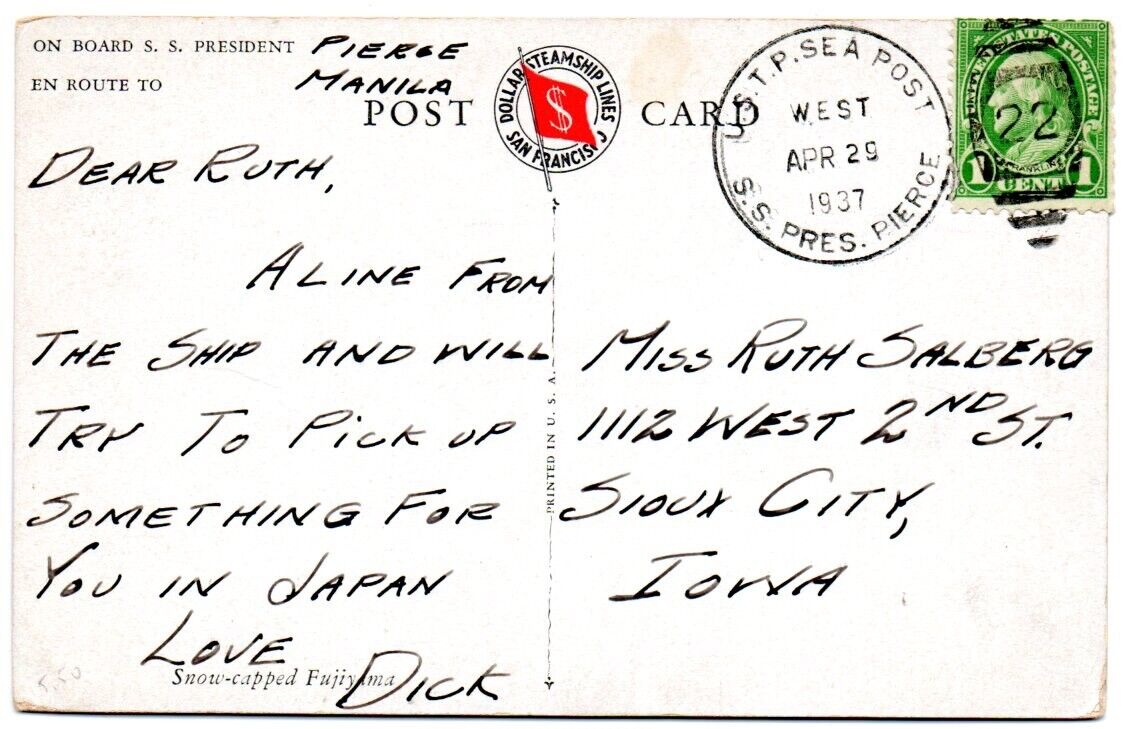 ON BOARD S. S. PRESIDENT PIERCE
EN ROUTE TO MANILA
POST CARD
DOLLAR STEAMSHIP LINES
$
SAN FRANCISCO
U.S.T.P. SEA POST
WEST
APR 29
1937
S.S. PRES. PIERCE
UNITED STATES POSTAGE
22
FRANKLIN
1 CENT 1
DEAR RUTH,
A LINE FROM
THE SHIP AND WILL
TRY TO PICK UP
SOMETHING FOR
YOU IN JAPAN
LOVE
DICK
Snow-capped Fujiyama
PRINTED IN U. S. A.
MISS RUTH SALBERG
1112 WEST 2ND ST.
SIOUX CITY,
IOWA